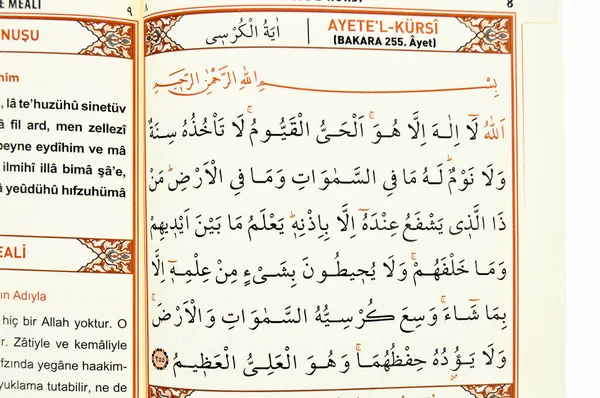 E MEALİ
٩
NUŞU
hîm
, lâ te'huzühû sinetüv
â fil ard, men zellezî
beyne eydîhim ve mâ
ilmihî illâ bimâ şâ'e,
â yeûdühû hıfzuhümâ
EALİ
ın Adıyla
hiç bir Allah yoktur. O
r. Zâtiyle ve kemâliyle
fzında yegâne haakim-
yuklama tutabilir, ne de
8
اٰيَةُ الْكُرْسِيّ
AYETE'L-KÜRSÎ
(BAKARA 255. Âyet)
بِسْمِ اللّٰهِ الرَّحْمٰنِ الرَّحِيمِ
اَللّٰهُ لَٓا اِلٰهَ اِلَّا هُوَۚ اَلْحَيُّ الْقَيُّومُۚ لَا تَأْخُذُهُ سِنَةٌ
وَلَا نَوْمٌۜ لَهُ مَا فِي السَّمٰوَاتِ وَمَا فِي الْاَرْضِۜ مَنْ
ذَا الَّذ۪ي يَشْفَعُ عِنْدَهُٓ اِلَّا بِاِذْنِه۪ۜ يَعْلَمُ مَا بَيْنَ اَيْد۪يهِمْ
وَمَا خَلْفَهُمْۚ وَلَا يُح۪يطُونَ بِشَيْءٍ مِنْ عِلْمِه۪ٓ اِلَّا
بِمَا شَٓاءَۚ وَسِعَ كُرْسِيُّهُ السَّمٰوَاتِ وَالْاَرْضَۚ
وَلَا يَؤُ۫دُهُ حِفْظُهُمَاۚ وَهُوَ الْعَلِيُّ الْعَظ۪يمُ ٢٥٥